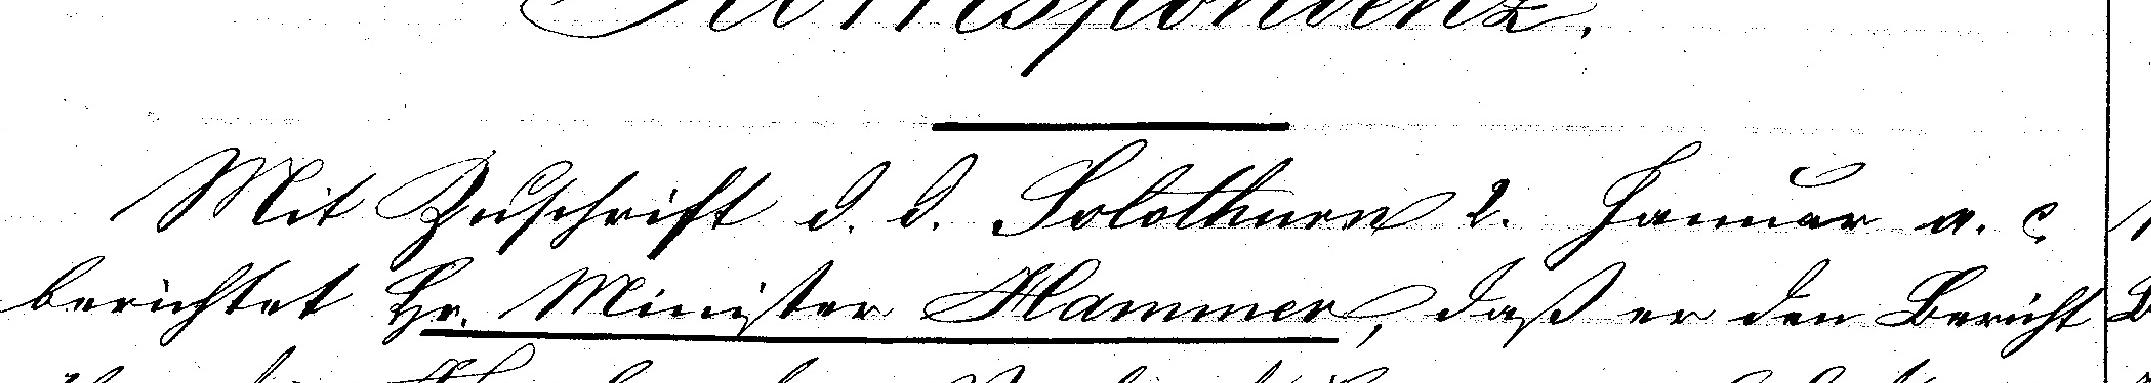 Korrespondenz.
Mit Zuschrift d. d. Solothurn 2. Januar a. c.
berichtet Hr. Minister Hammer, daß er den Bericht